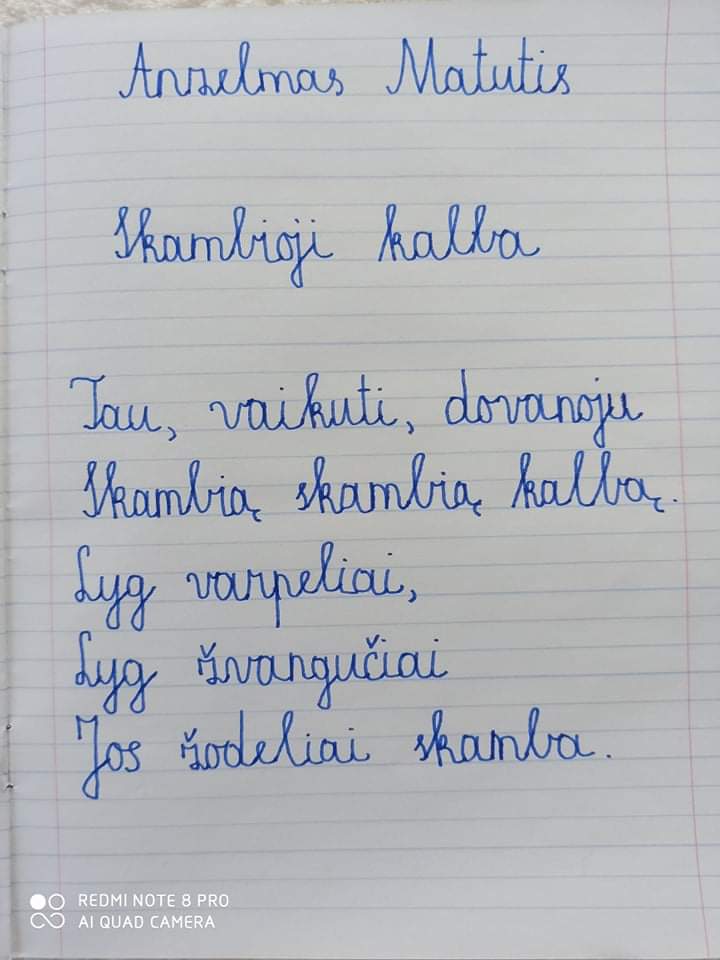 Anzelmas Matutis
Skambioji kalba
Tau, vaikuti, dovanoju
Skambią skambią kalbą.
Lyg varpeliai,
Lyg žvangučiai
Jos žodeliai skamba.
REDMI NOTE 8 PRO
AI QUAD CAMERA